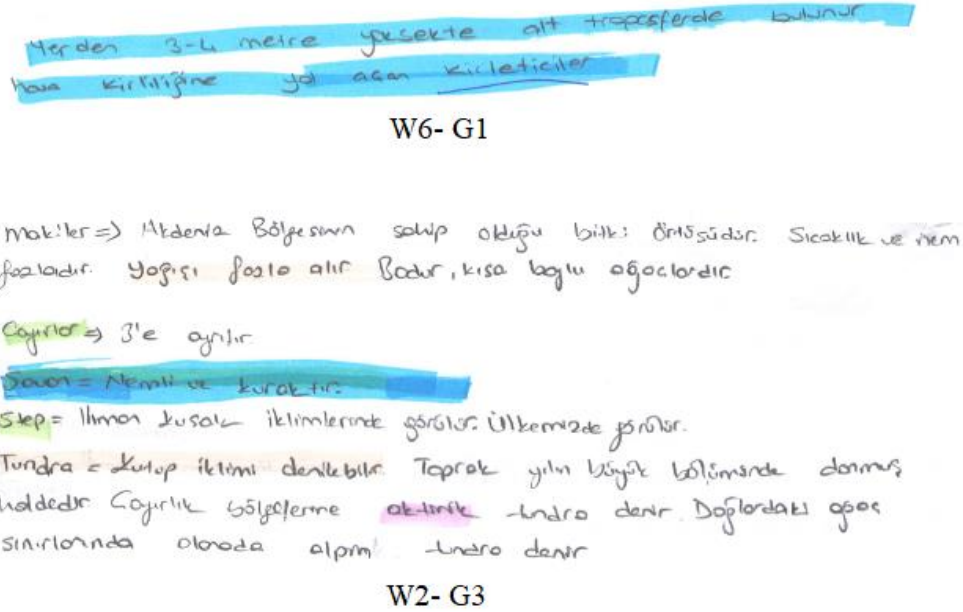 Yerden 3-4 metre yüksekte alt troposferde bulunur
Hava kirliliğine yol açan kirleticiler
W6- G1
Makiler => Akdeniz Bölgesinin sahip olduğu bitki örtüsüdür. Sıcaklık ve nem
fazladır. Yağışı fazla alır Bodur, kısa boylu ağaçlardır
Çayırlar => 3'e ayrılır.
Savan = Nemli ve kuraktır.
Step = Ilıman kuşak iklimlerinde görülür. Ülkemizde görülür.
Tundra = Kutup iklimi denilebilir. Toprak yılın büyük bölümünde donmuş
haldedir Çayırlık bölgelerine tundra denir. Dağlardaki ağaç
sınırlarında olanada alpin tundra denir
W2- G3